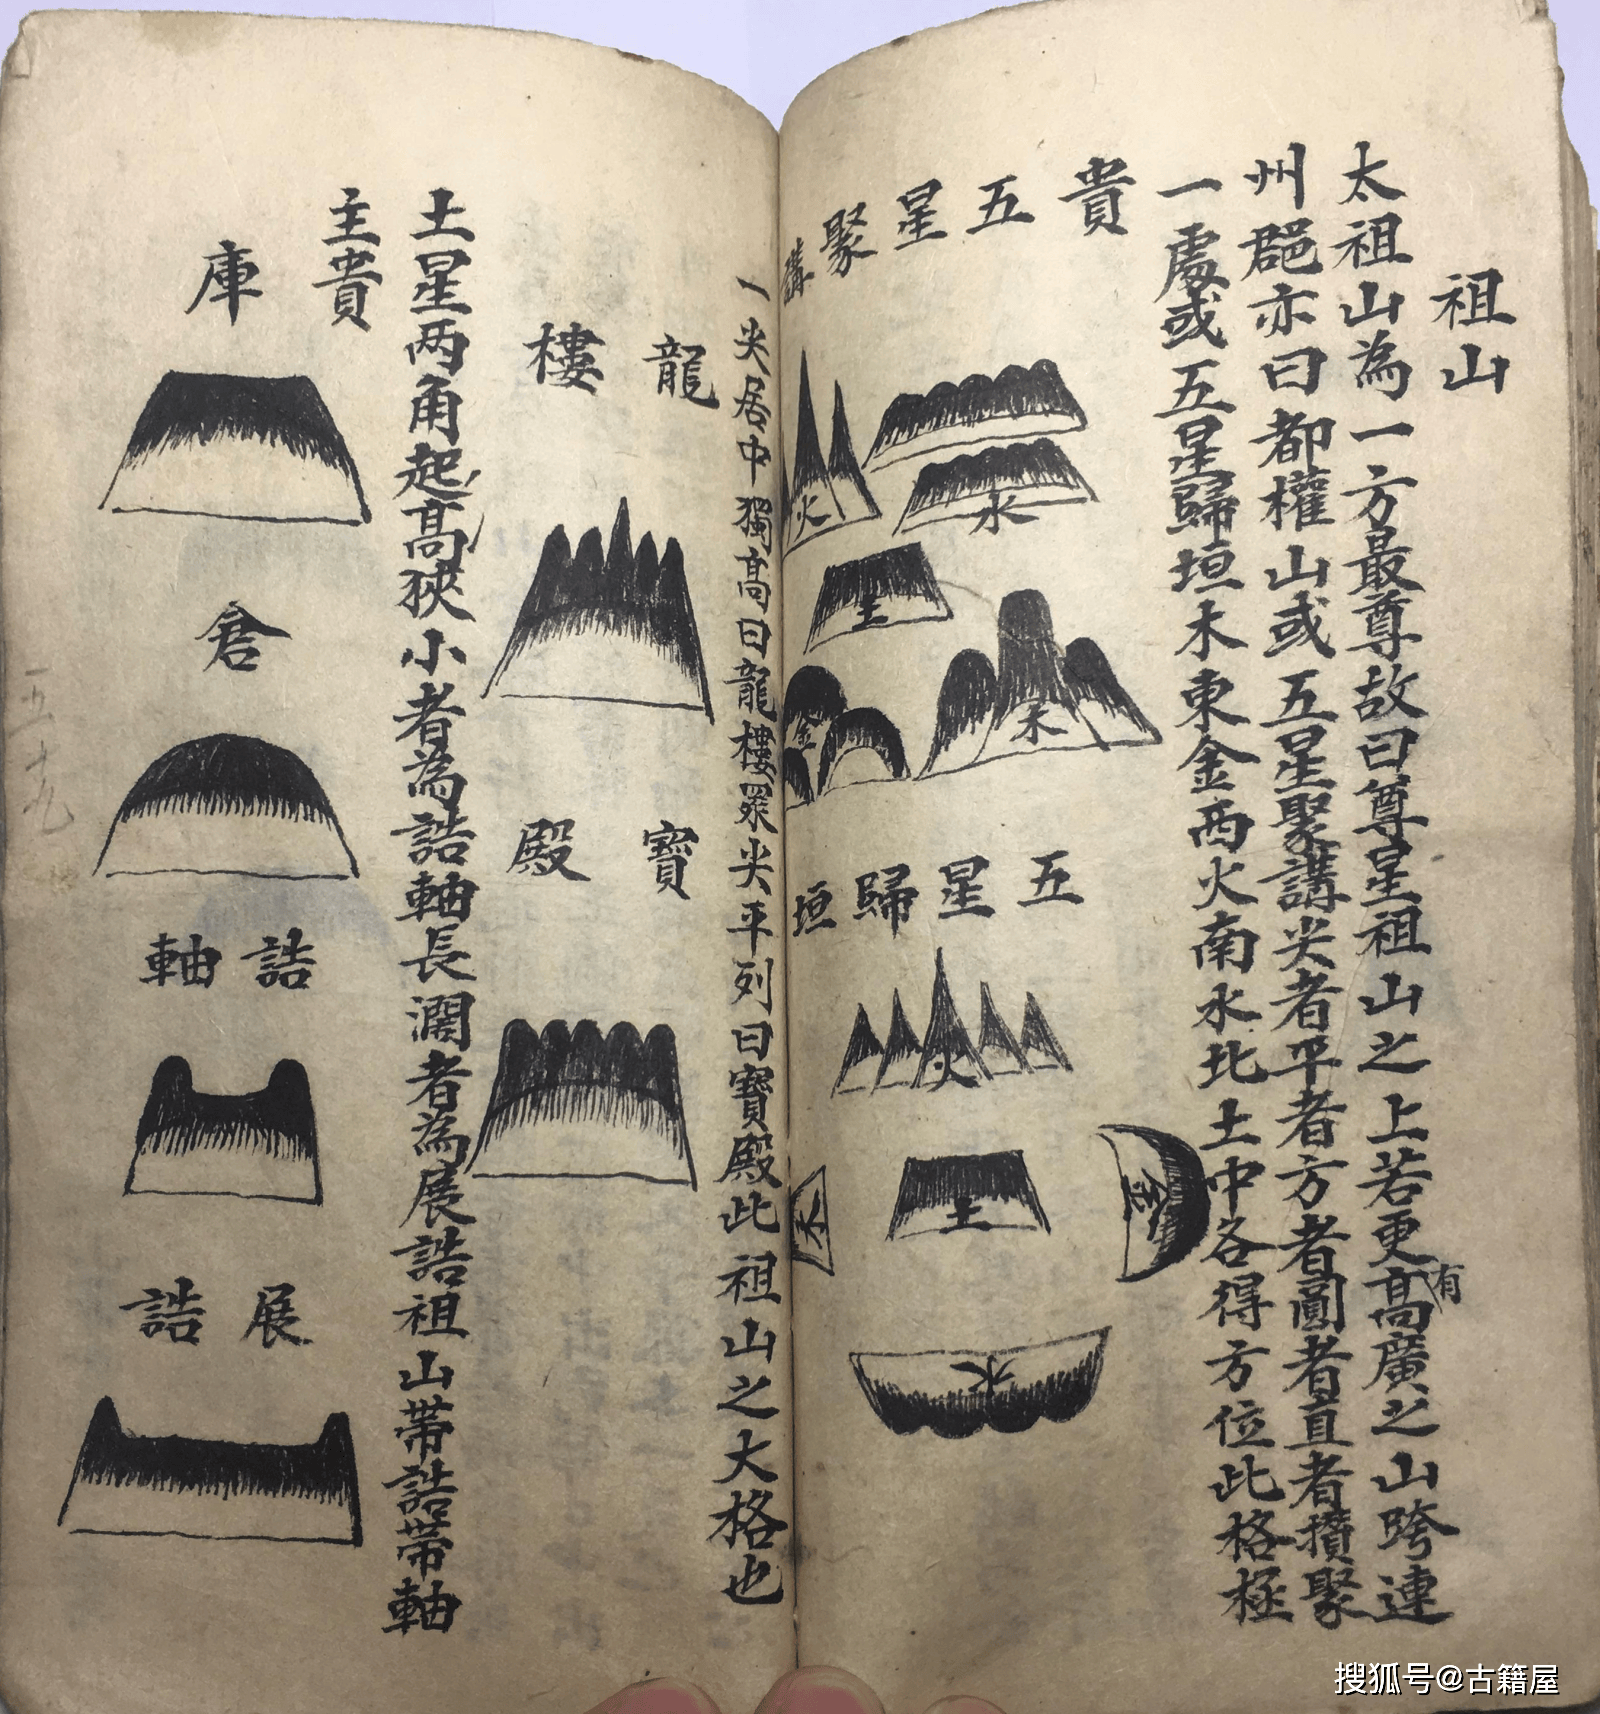 祖山
太祖山為一方最尊故曰尊星祖山之上若更有高廣之山跨連
州郡亦曰都權山或五星聚講尖者平者方者圓者直者攢聚
一處或五星歸垣木東金西火南水北土中各得方位此格極
貴
五星聚講
火
水
土
金
木
五星歸垣
火
土
金
木
水
一尖居中獨高曰龍樓眾尖平列曰寶殿此祖山之大格也
龍樓
寶殿
土星两角起高狹小者為誥軸長濶者為展誥祖山帶誥帶軸
主貴
庫
倉
誥軸
展誥
五十九
搜狐号@古籍屋